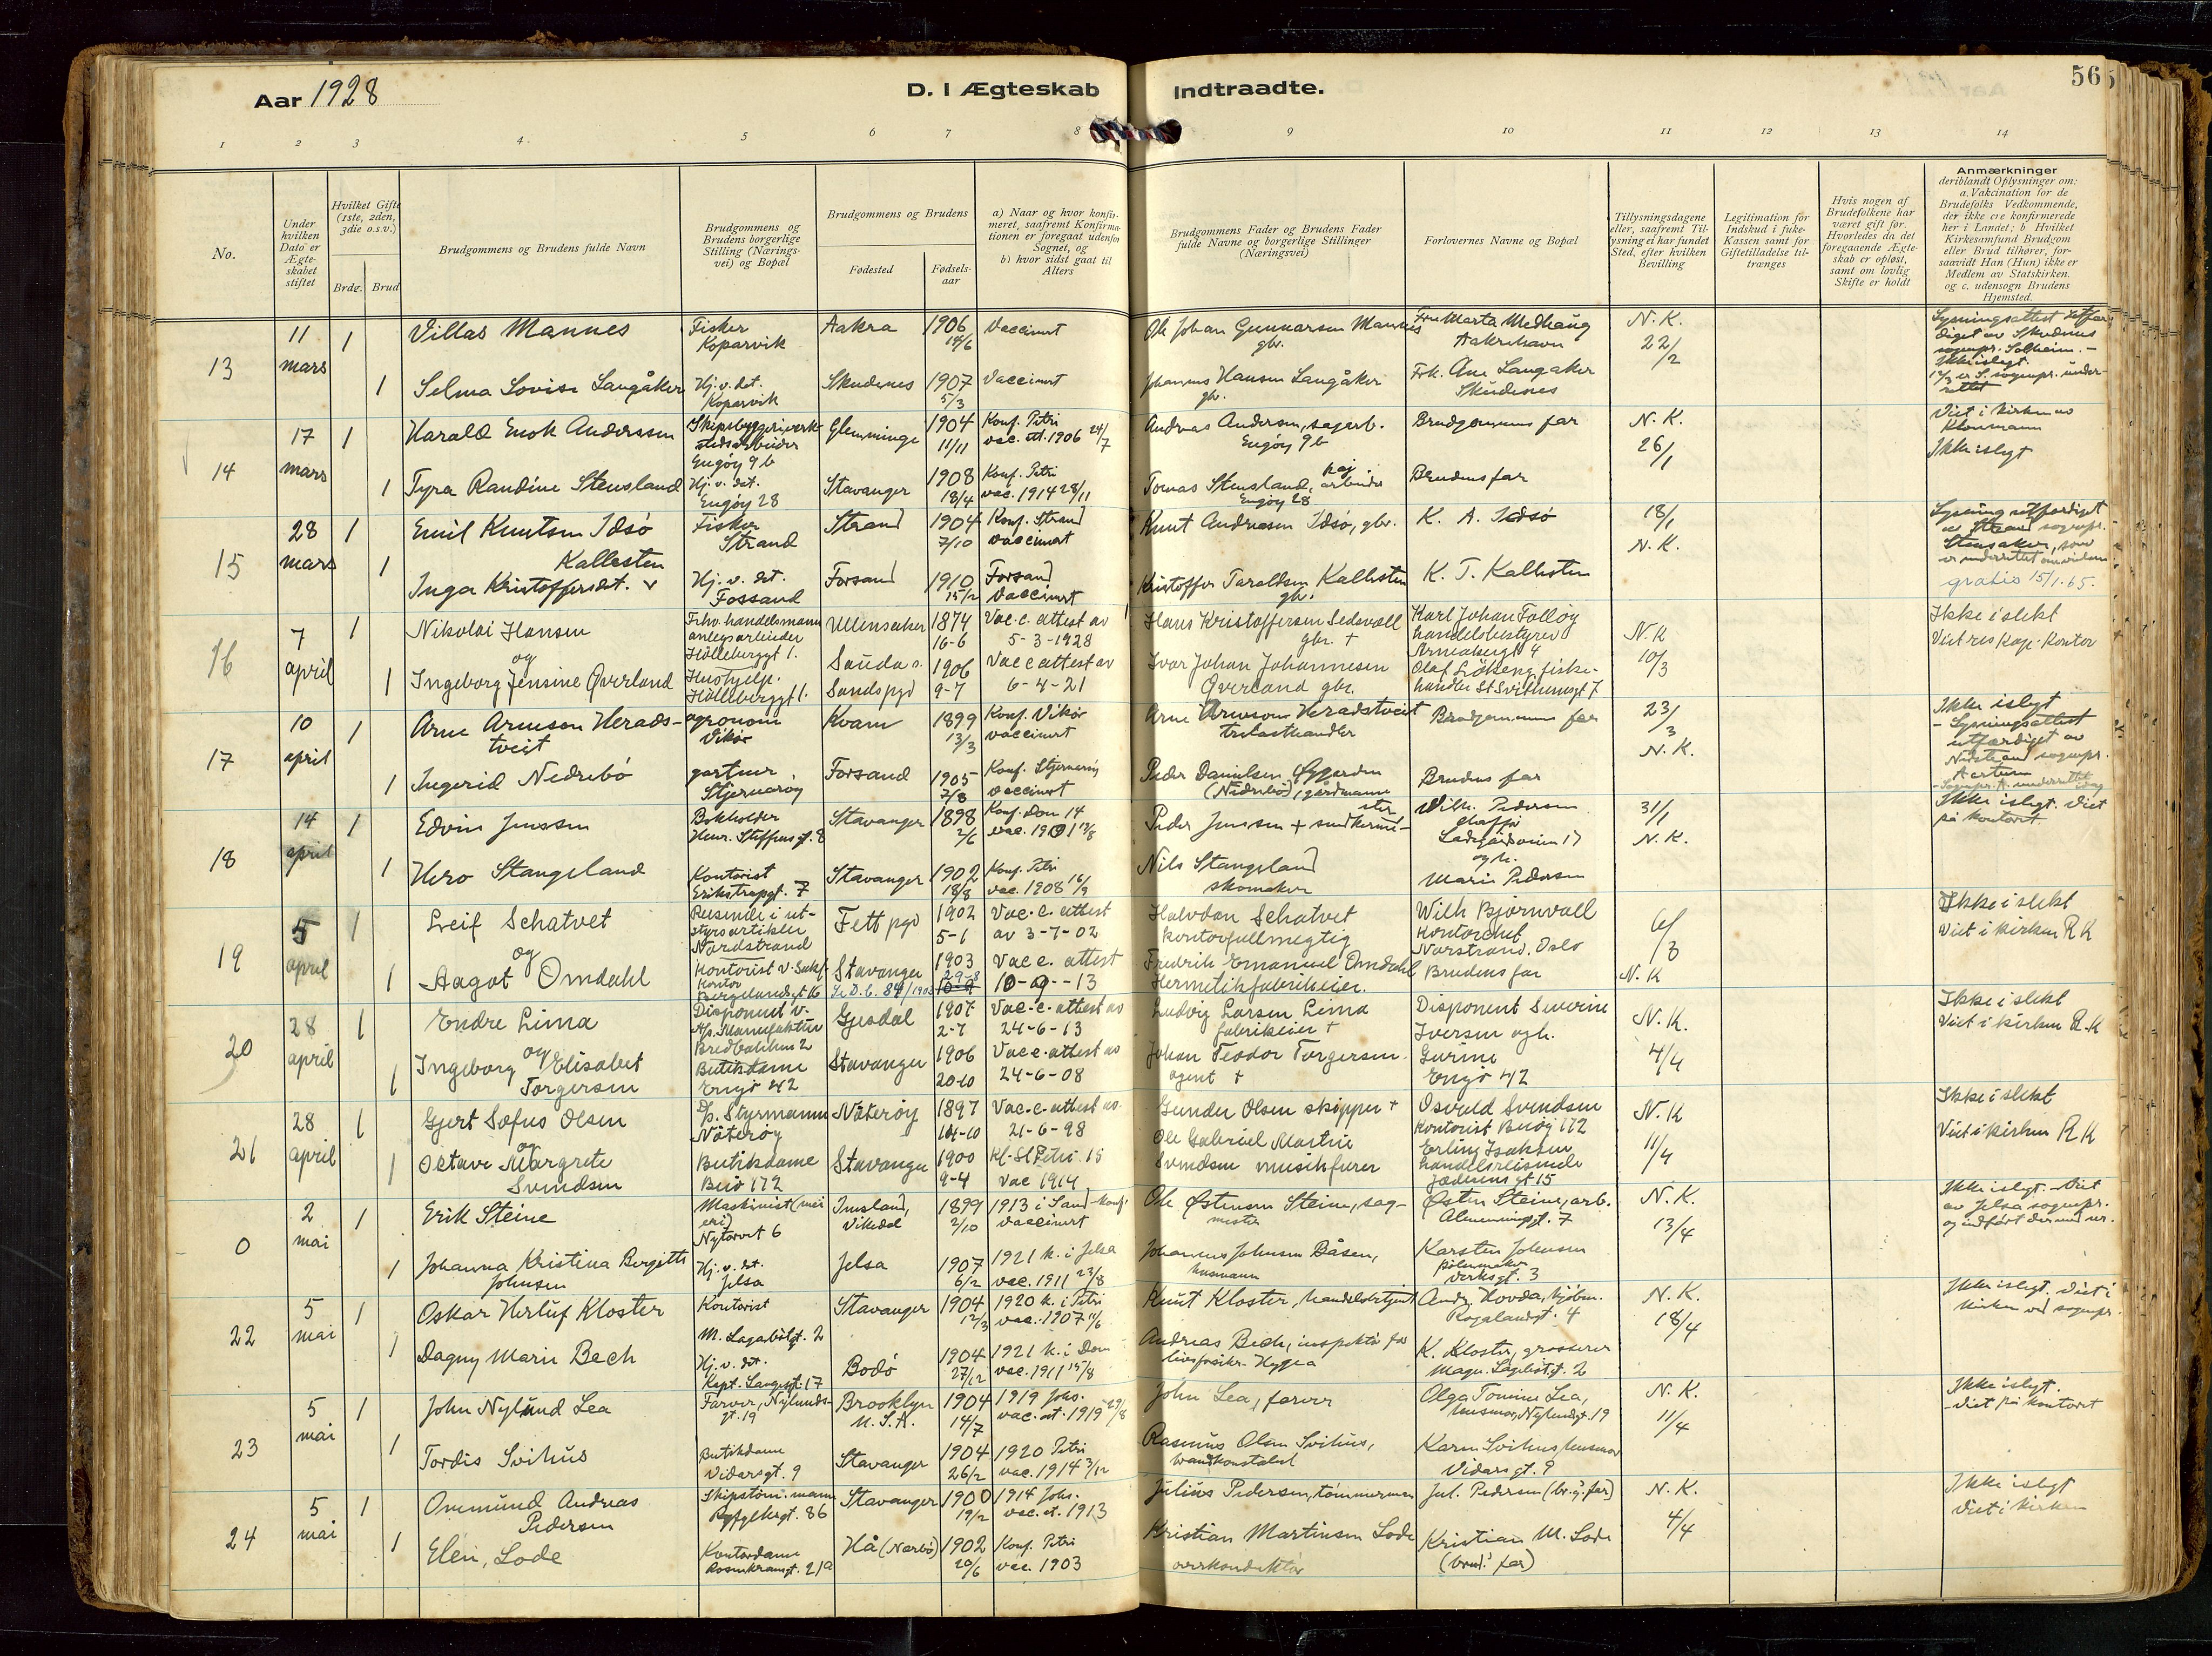 Aar 1928
D. I Ægteskab Indtraadte.
565
1 2 3 4 5 6 7 8 9 10 11 12 13 14
No.
Under hvilken Dato er Ægteskabet stiftet
Hvilket Gifte (1ste, 2den, 3die o.s.v.)
Brdg. Brud
Brudgommens og Brudens fulde Navn
Brudgommens og Brudens borgerlige Stilling (Næringsvei) og Bopæl
Brudgommens og Brudens
Fødested
Fødselsaar
a) Naar og hvor konfirmeret, saafremt Konfirmationen er foregaat udenfor Sognet, og
b) hvor sidst gaat til Alters
Brudgommens Fader og Brudens Fader fulde Navne og borgerlige Stillinger (Næringsvei)
Forlovernes Navne og Bopæl
Tillysningsdagene eller, saafremt Tillysning ei har fundet Sted, efter hvilken Bevilling
Legitimation for Indskud i fuke-Kassen samt for Giftetilladelse tiltrænges
Hvis nogen af Brudefolkene har været gift før. Hvorledes da det foregaaende Ægteskab er opløst, samt om lovlig Skifte er holdt
Anmærkninger
deriblandt Oplysninger om: a. Vakcination for de Brudefolks Vedkommende, der ikke ere konfirmerede her i Landet; b Hvilket Kirkesamfund Brudgom eller Brud tilhører, forsaavidt Han (Hun) ikke er Medlem av Statskirken. og c. udensogn Brudens Hjemsted.
13
11 mars
1 Villas Mannes
Fisker Koparvik
Aakra
1906
Vaccinert
Ole Johan Gunnarsen Mannes gbr.
Fru Marta Medhaug Aakrehavn
N.K. 22/2
1 Selma Lovise Langåker
Hj. v. det. Koparvik
Skudenes
1907 5/3
Vaccinert
Johannes Hansen Langåker gbr.
Frk. Ane Langåker Skudenes
14
17 mars
1 Harald Enok Anderssen
Engøy 9 b
Glemminge
1904 11/11
Konf. Petri vac. att. 1906 24/7
Andreas Andersen, sagarb. Engøy 9b
Brudgommens far
N.K. 26/1
Viet i kirken av Klonmann
Ikke i slegt
1 Tyra Randine Stensland
Hj. v. det. Engøy 28
Stavanger
1908 18/4
Konf. Petri vac. 1914 28/11
Tomas Stensland, arbeider Engøy 28
Brudens far
15
28 mars
1 Emil Knutsen Idsö
Fisker Strand
Strand
1904 7/10
Konf. Strand vaccinert
Knut Andreasen Idsö, gbr.
K. A. Idsö
18/1 N.K.
1 Inga Kristoffersdt. Kallesten
Hj. v. det. Fossand
Forsand
1910 15/2
Forsand Vaccinert
Kristoffer Taraldsen Kallesten gbr.
K. T. Kallesten
gratis 15/1.65.
16
7 april
1 Nikolai Hansen
og
Frhv. handelsmann anlegsarbeider Hölleberggt 1.
Ullensaker
1874 16-6
Vac.c. attest av 5-3-1928
Hans Kristoffersen Sedevoll gbr. +
Karl Johan Falløy handelsbestyrer Arneabergt 4
N.K 10/3
Ikke i slekt
Viet res kap. kontor
1 Ingeborg Jensine Øverland
Hushjelp. Hölleberggt 1.
Sauda s. Sandspgd
1906 9-7
Vacc attest av 6-4-21
Ivar Johan Johannesen Øverland gbr.
Olaf Lökeng, fiskehandler St Svithunsgt 7
17
10 april
1 Arne Arneson Heradstveit
agronom Vikör
Kvam
1899 13/3
Konf. Vikör vaccinert
Arne Arneson Heradstveit trelasthandler
Brudgommens far
23/3 N.K.
Ikke i slegt
- Lysningsattest utfærdiget av
1 Ingerid Nedrebö
gartner Stjernarøy
Forsand
1905 7/8
Konf. Stjernerøy vaccinert
Peder Danielsen Øygarden (Nedrebö), gårdmann
Brudens far
18
14 april
1 Edvin Jenssen
Bokholder Henr. Steffens gt. 8
Stavanger
1898 2/6
Konf. Dom 14
Peder Jenssen +
Wilh. Pedersen Ladegårdsveien 17 og h. Marie Pedersen
31/1 N.K.
Ikke i slegt. Viet på kontoret.
1 Hero Stangeland
Kontorist Erikstrapgt. 7
Stavanger
1902 18/8
Konf. Petri vac. 1908 16/9
Nils Stangeland skomaker
19
5 april
1 Leif Schatvet
og
Reisende i utstyrsartikler Nordstrand
Fett pgd
1902 5-1
Vac.c. attest av 3-7-02
Halvdan Schatvet kontorfullmegtig
Wilh Bjørnvall Kontorchef Norstrand, Oslo
6/3 N.K
Ikke i slekt
Viet i kirken R K
1 Aagot Omdahl
Kontorist v. Sakf. Kontor Bergelandsgt 16
Stavanger
1903 29-8
Vac c. attest 10-9--13
Fredrik Emanuel Omdahl Hermetikfabrikeier.
Brudens far
20
28 april
1 Endre Lima
og
Disponent v. A/s. Manufaktur Bredbakken 2
Gjesdal
1907 2-7
Vac-c-attest av 24-6-13
Ludvig Larsen Lima fabrikeier +
Disponent Severine Iversen og h. Gurine Engö 42
N.K. 4/4
Ikke i slekt
Viet i kirken R.K
1 Ingeborg Elisabet Torgersen
Butikdame Engö 42
Stavanger
1906 20-10
Vac c. attest av 24-6-08
Johan Teodor Torgersen agent +
21
28 april
1 Gjert Sofus Olsen
og
D/s. Styrmann Nöterøy
Nöterøy
1897 14-10
Vac.c-attest av 21-6-98
Gunder Olsen skipper +
Osvald Svendsen Kontorist Buöy 172
N.K 11/4
Ikke i slekt
Viet i kirken R K
1 Octave Margrete Svendsen
Butikdame Buö 172
Stavanger
1900 9-4
Kf. St Petri 15 Vac 1914
Ole Gabriel Martin Svendsen musikfører
Erling Isaksen handelsreisende Jædernsgt 15
0
2 mai
1 Erik Steine
Maskinist (meieri) Nytorvet 6
Imsland, Vikedal
1899 2/10
1913 i Sand - konf. vaccinert
Ole Østensen Steine, sagmester
Østen Steine, arb. Almenningst. 7
N.K. 13/4
Ikke i slegt. Viet av Jelsa sognepr.
1 Johanna Kristina Bergitte Johnsen
Hj. v. det. Jelsa
Jelsa
1907 6/2
1921 k. i Jelsa vac. 1911 23/8
Johannes Johnsen Båsen, husmann
Karsten Johnsen Verksgt. 3
22
5 mai
1 Oskar Herluf Kloster
Kontorist M. Lagabötgt. 2
Stavanger
1904 12/3
1920 k. i Petri vac. 1907 11/6
Knut Kloster, handelsbetjent
Andr. Hovda, kjöbm. Rogalandsgt. 4
N.K. 18/4
Ikke i slegt. Viet i kirken ved sognepr.
1 Dagny Marie Bech
Hj. v. det. Kapt. Langesgt. 17
Bodö
1904 27/12
1921 k. i Dom vac. 1911 15/8
Andreas Bech, inspektör for livsforsikr. Hygea
K. Kloster, grosserer Magn. Lagabötgt. 2
23
5 mai
1 John Nylund Lea
Farver, Nylundsgt. 19
Brooklyn U.S.A.
1904 14/7
1919 Johs. vac. at. 1919 29/8
John Lea, farver
Olga Tomine Lea, husmor, Nylundsgt. 19
N.K. 11/4
Ikke i slegt.
- Viet på kontoret
1 Tordis Svihus
Butikdame Vidarsgt. 9
Stavanger
1904 26/2
1920 Petri vac. 1914 3/12
Rasmus Olsen Svihus, brandkonstabel
Karen Svihus husmor Vidarsgt. 9
24
5 mai
1 Ommund Andreas Pedersen
Skipstöm.mann Ryfylkegt. 86
Stavanger
1900 19/2
1914 Johs. vac. at. 1913
Julius Pedersen, tömmermann
Jul. Pedersen (br.g. far)
N.K. 4/4
Ikke i slegt
Viet i kirken
1 Elen, Lode
Kontordame Rosenkransgt. 21a
Hå (Nærbö)
1902 20/6
Konf. Petri vac. 1903
Kristian Martinsen Lode overkonduktör
Kristian M. Lode (brud. far)